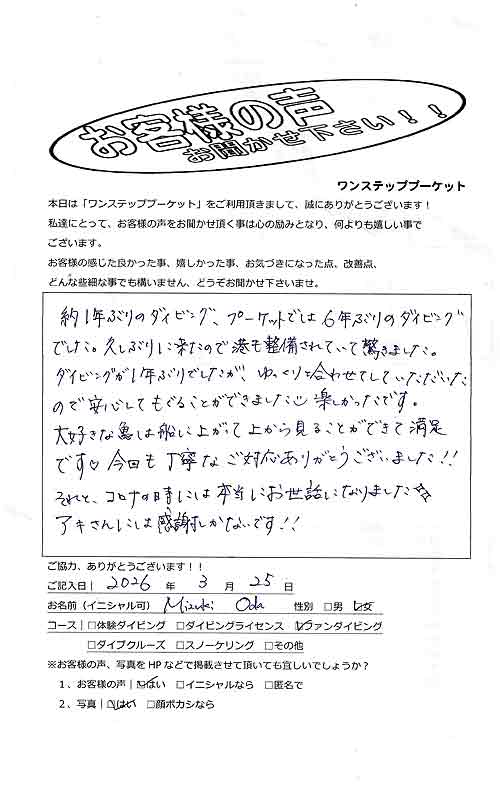 お客様の声
お聞かせ下さい！！
ワンステッププーケット
本日は「ワンステッププーケット」をご利用頂きまして、誠にありがとうございます！
私達にとって、お客様の声をお聞かせ頂く事は心の励みとなり、何よりも嬉しい事で
ございます。
お客様の感じた良かった事、嬉しかった事、お気づきになった点、改善点、
どんな些細な事でも構いません、どうぞお聞かせ下さいませ。
約1年ぶりのダイビング、プーケットでは6年ぶりのダイビング
でした。久しぶりに来たので港も整備されていて驚きました。
ダイビングが1年ぶりでしたが、ゆっくりと合わせてしていただいた
ので安心してもぐることができました 楽しかったです。
大好きな亀は船に上がって上から見ることができて満足
です♡ 今回も丁寧なご対応ありがとうございました!!
それと、コロナの時には本当にお世話になりました☆
アキさんには感謝しかないです!!
ご協力、ありがとうございます！！
ご記入日| 2026 年 3 月 25 日
お名前（イニシャル可） Mizuki Oda 性別 □男 ☑女
コース| □体験ダイビング □ダイビングライセンス ☑ファンダイビング
□ダイブクルーズ □スノーケリング □その他
※お客様の声、写真をHPなどで掲載させて頂いても宜しいでしょうか？
１、お客様の声| ☑はい □イニシャルなら □匿名で
２、写真| ☑はい □顔ボカシなら